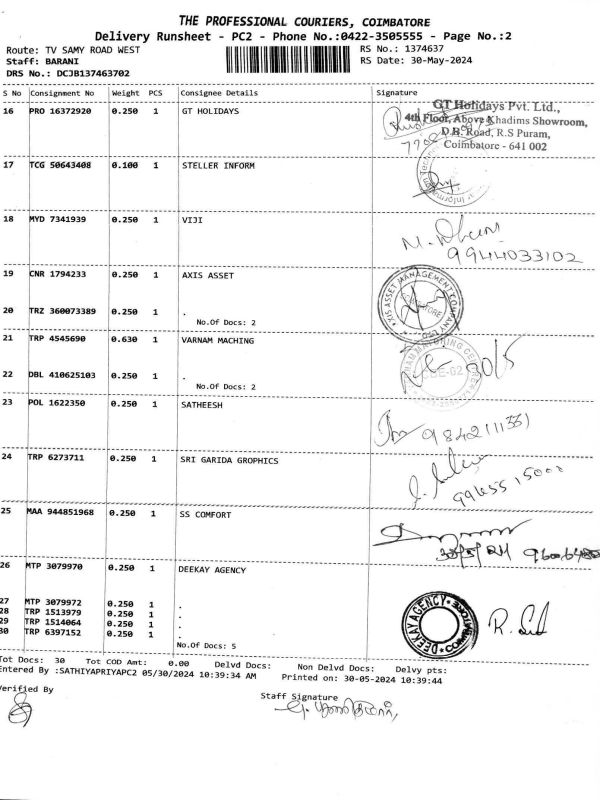 THE PROFESSIONAL COURIERS, COIMBATORE
Delivery Runsheet - PC2 - Phone No.:0422-3505555 - Page No.:2
Route: TV SAMY ROAD WEST RS No.: 1374637
Staff: BARANI RS Date: 30-May-2024
DRS No.: DCJB137463702
S No Consignment No Weight PCS Consignee Details Signature
16 PRO 16372920 0.250 1 GT HOLIDAYS
GT Holidays Pvt. Ltd.,
4th Floor, Above Khadims Showroom,
D.B. Road, R.S Puram,
Coimbatore - 641 002
17 TCG 50643408 0.100 1 STELLER INFORM
18 MYD 7341939 0.250 1 VIJI
9944033102
19 CNR 1794233 0.250 1 AXIS ASSET
AXIS ASSET MANAGEMENT COMPANY LTD
20 TRZ 360073389 0.250 1 .
No.Of Docs: 2
21 TRP 4545690 0.630 1 VARNAM MACHING
30/5
22 DBL 410625103 0.250 1 .
No.Of Docs: 2
23 POL 1622350 0.250 1 SATHEESH
24 TRP 6273711 0.250 1 SRI GARIDA GROPHICS
25 MAA 944851968 0.250 1 SS COMFORT
26 MTP 3079970 0.250 1 DEEKAY AGENCY
DEEKAY AGENCY
27 MTP 3079972 0.250 1 .
28 TRP 1513979 0.250 1 .
29 TRP 1514064 0.250 1 .
30 TRP 6397152 0.250 1 .
No.Of Docs: 5
Tot Docs: 30 Tot COD Amt: 0.00 Delvd Docs: Non Delvd Docs: Delvy pts:
Entered By :SATHIYAPRIYAPC2 05/30/2024 10:39:34 AM Printed on: 30-05-2024 10:39:44
Verified By Staff Signature